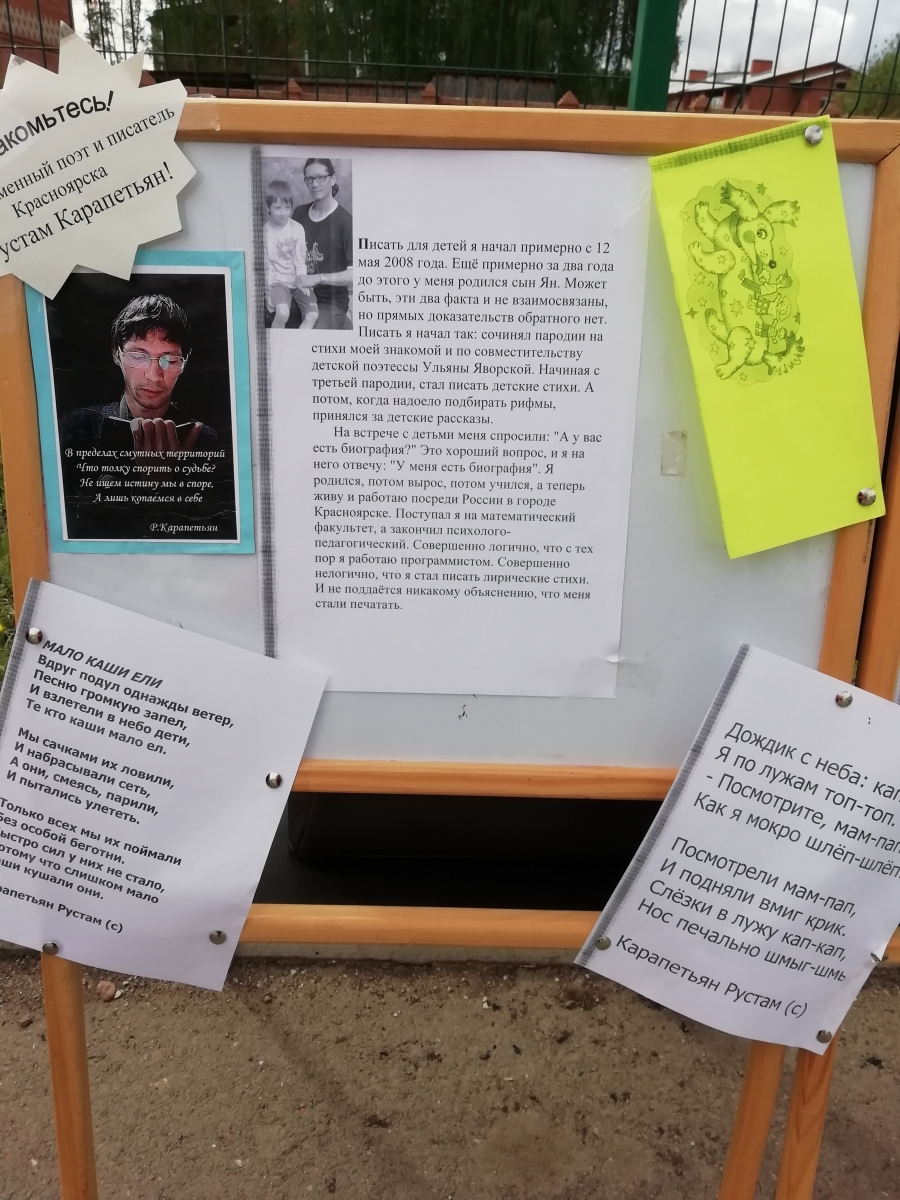 акомьтесь!
менный поэт и писатель
Красноярска
устам Карапетьян!
В пределах смутных территорий
Что толку спорить о судьбе?
Не ищем истину мы в споре,
А лишь копаемся в себе
Р.Карапетьян
Писать для детей я начал примерно с 12
мая 2008 года. Ещё примерно за два года
до этого у меня родился сын Ян. Может
быть, эти два факта и не взаимосвязаны,
но прямых доказательств обратного нет.
Писать я начал так: сочинял пародии на
стихи моей знакомой и по совместительству
детской поэтессы Ульяны Яворской. Начиная с
третьей пародии, стал писать детские стихи. А
потом, когда надоело подбирать рифмы,
принялся за детские рассказы.
На встрече с детьми меня спросили: "А у вас
есть биография?" Это хороший вопрос, и я на
него отвечу: "У меня есть биография". Я
родился, потом вырос, потом учился, а теперь
живу и работаю посреди России в городе
Красноярске. Поступал я на математический
факультет, а закончил психолого-
педагогический. Совершенно логично, что с тех
пор я работаю программистом. Совершенно
нелогично, что я стал писать лирические стихи.
И не поддаётся никакому объяснению, что меня
стали печатать.
МАЛО КАШИ ЕЛИ
Вдруг подул однажды ветер,
Песню громкую запел,
И взлетели в небо дети,
Те кто каши мало ел.
Мы сачками их ловили,
И набрасывали сеть,
А они, смеясь, парили,
И пытались улететь.
Только всех мы их поймали
Без особой беготни.
ыстро сил у них не стало,
отому что слишком мало
аши кушали они.
рапетьян Рустам (с)
Дождик с неба: кап
Я по лужам топ-топ.
- Посмотрите, мам-пап
Как я мокро шлёп-шлёп.
Посмотрели мам-пап,
И подняли вмиг крик.
Слёзки в лужу кап-кап,
Нос печально шмыг-шмы
Карапетьян Рустам (с)